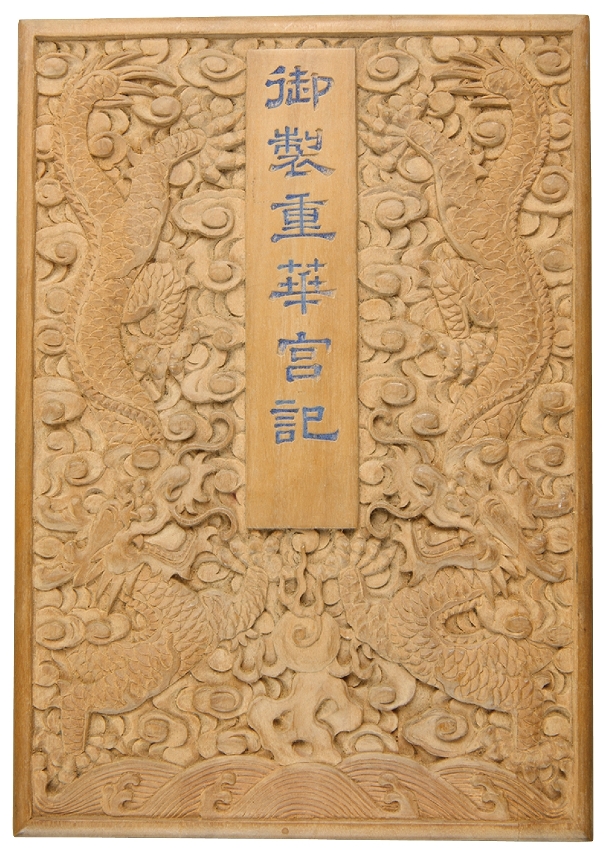 御製重華宮記